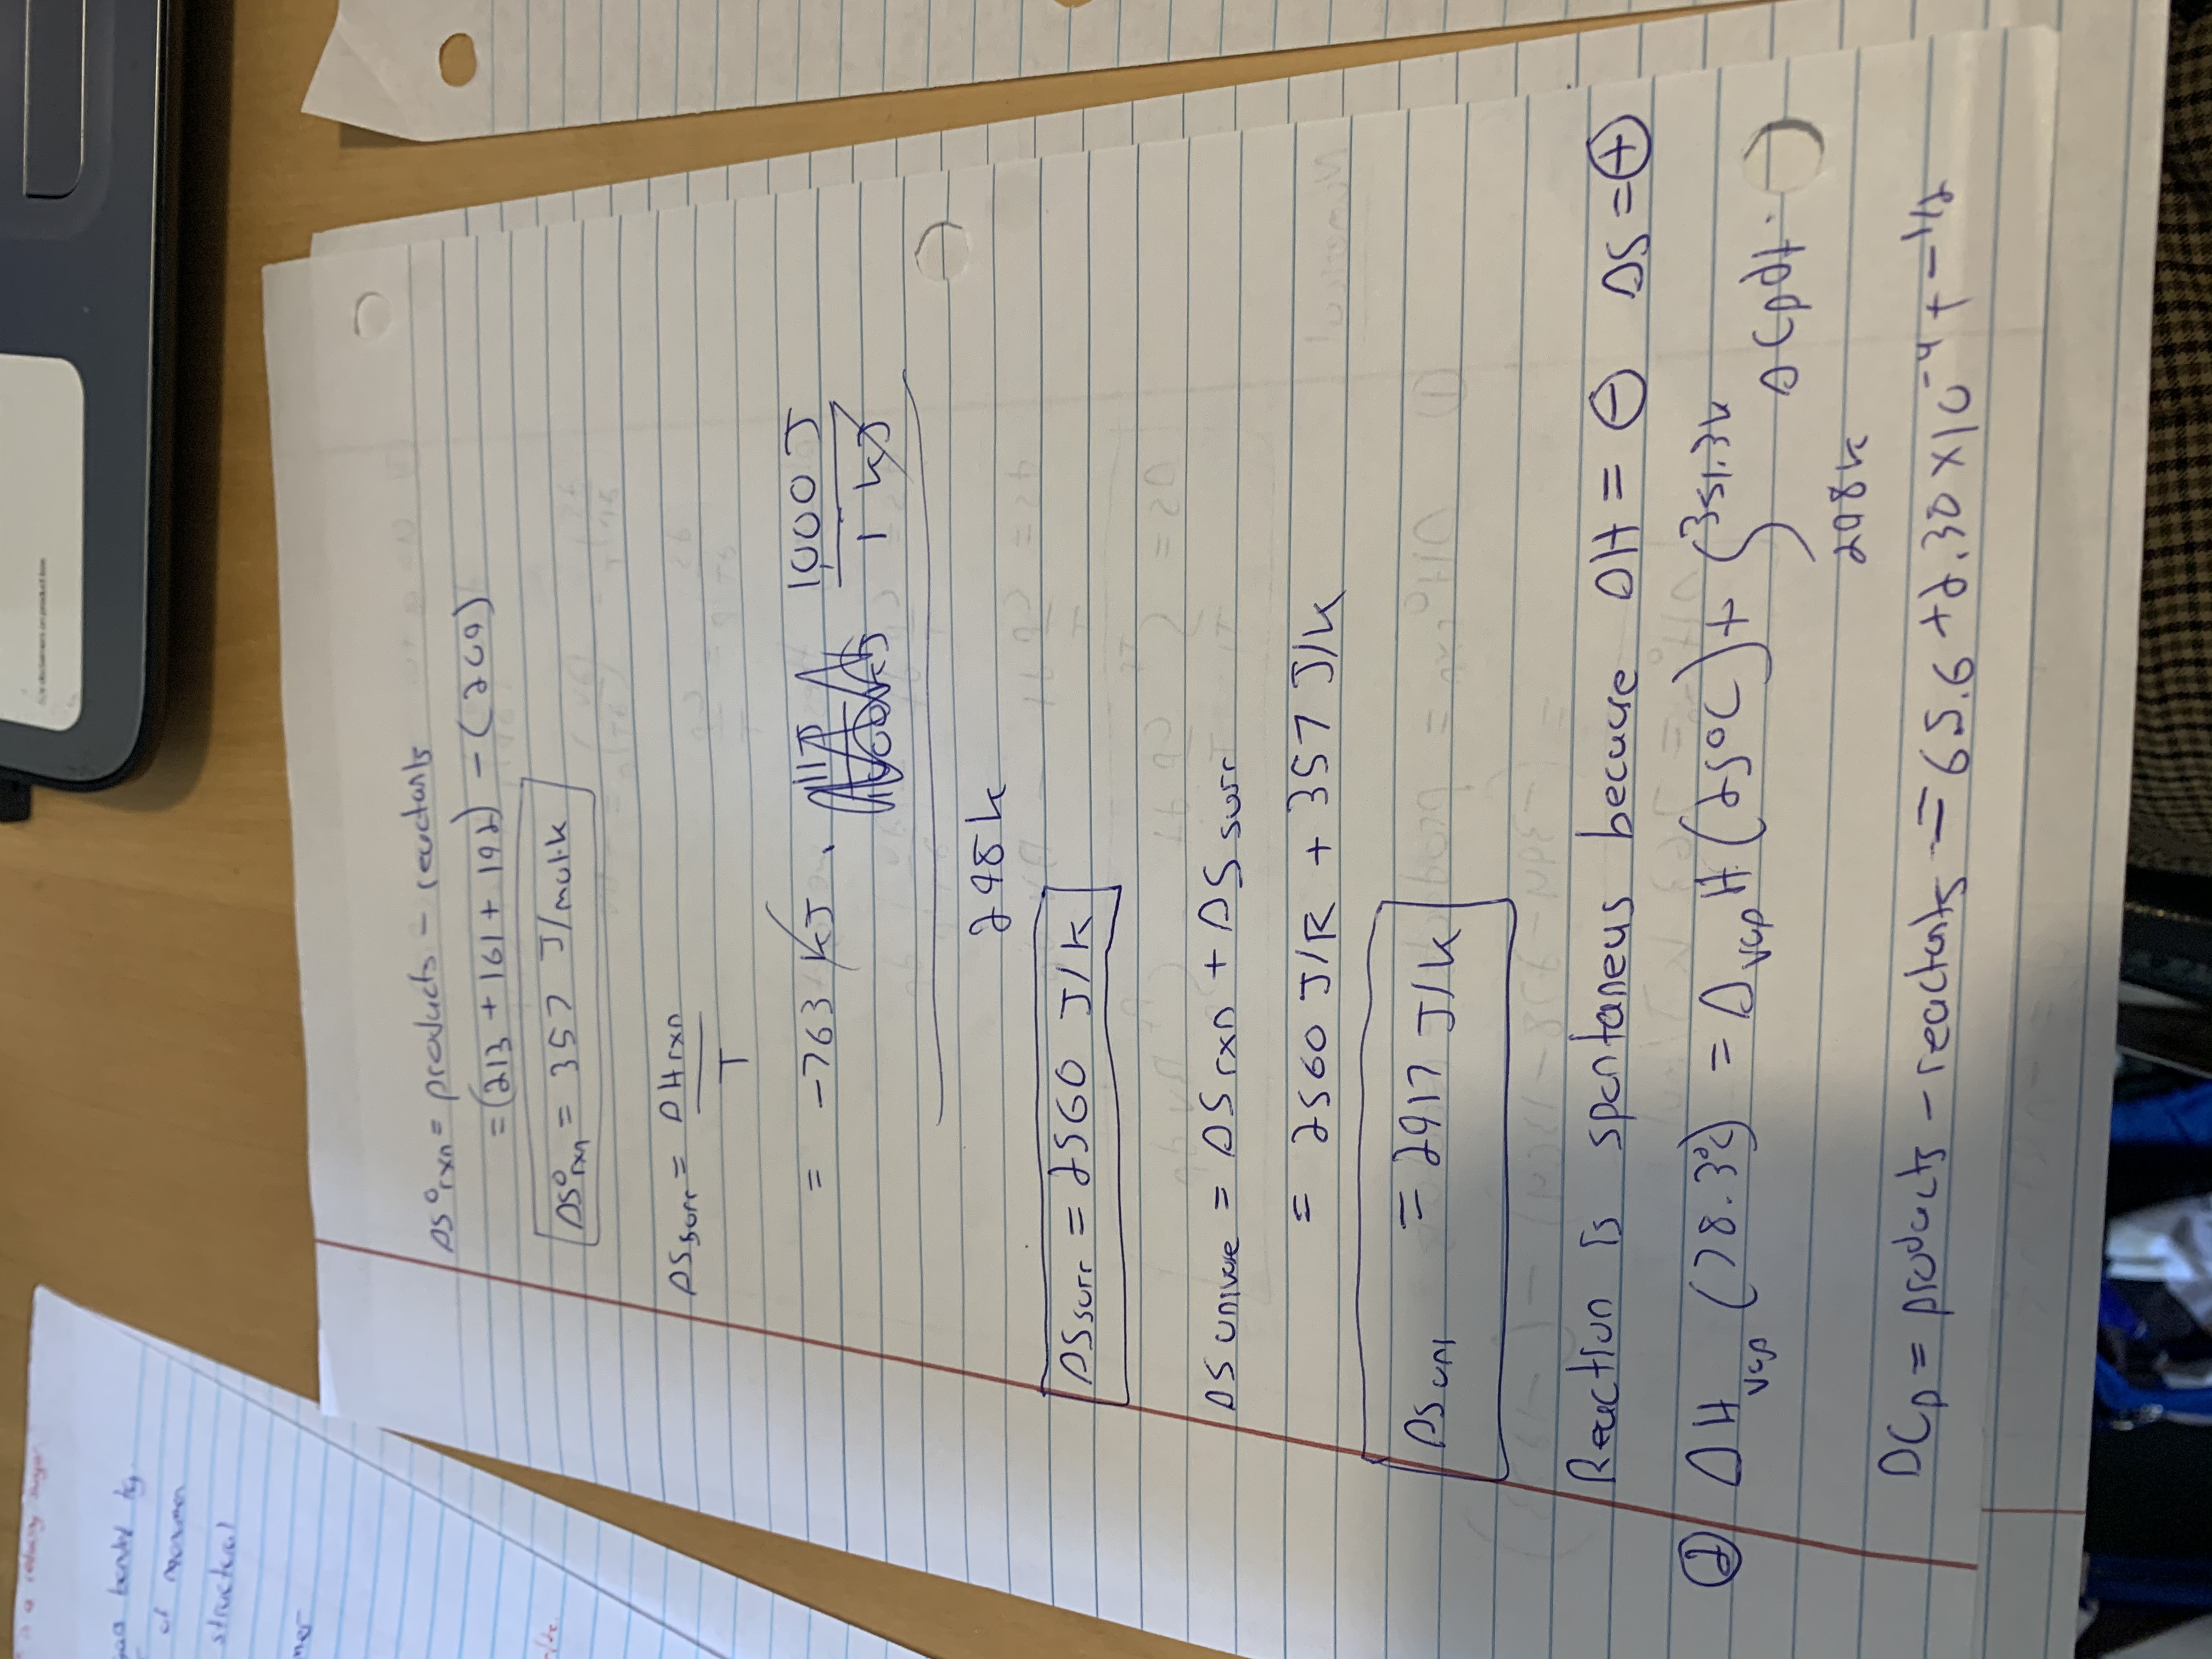 is a reducing sugar
bonded by
of monomer
structural
mer
See disclaimers on product box
ΔS°rxn = products - reactants
= (213 + 161 + 192) - (209)
ΔS°rxn = 357 J/mol·k
ΔSsurr = ΔHrxn
T
= -763 kJ · 1,000 J
1 kJ
298k
ΔSsurr = 2560 J/k
ΔS universe = ΔS rxn + ΔS surr
= 2560 J/k + 357 J/k
ΔS uni = 2917 J/k
Reaction is spontaneus because ΔH = ⊖ ΔS = ⊕
② ΔH vap (78.3°C) = Δvap H (25°C) + ∫ 351.3k
ΔCpdt.
298k
ΔCp = products - reactants = 65.6 + 2.30 x 10^-4 t^-1/2